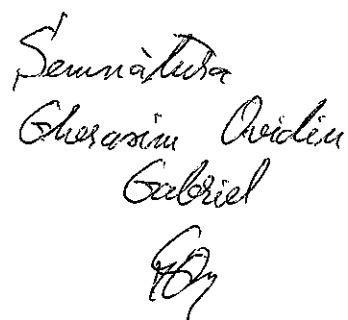 Semnătura
Gherasim Ovidiu
Gabriel